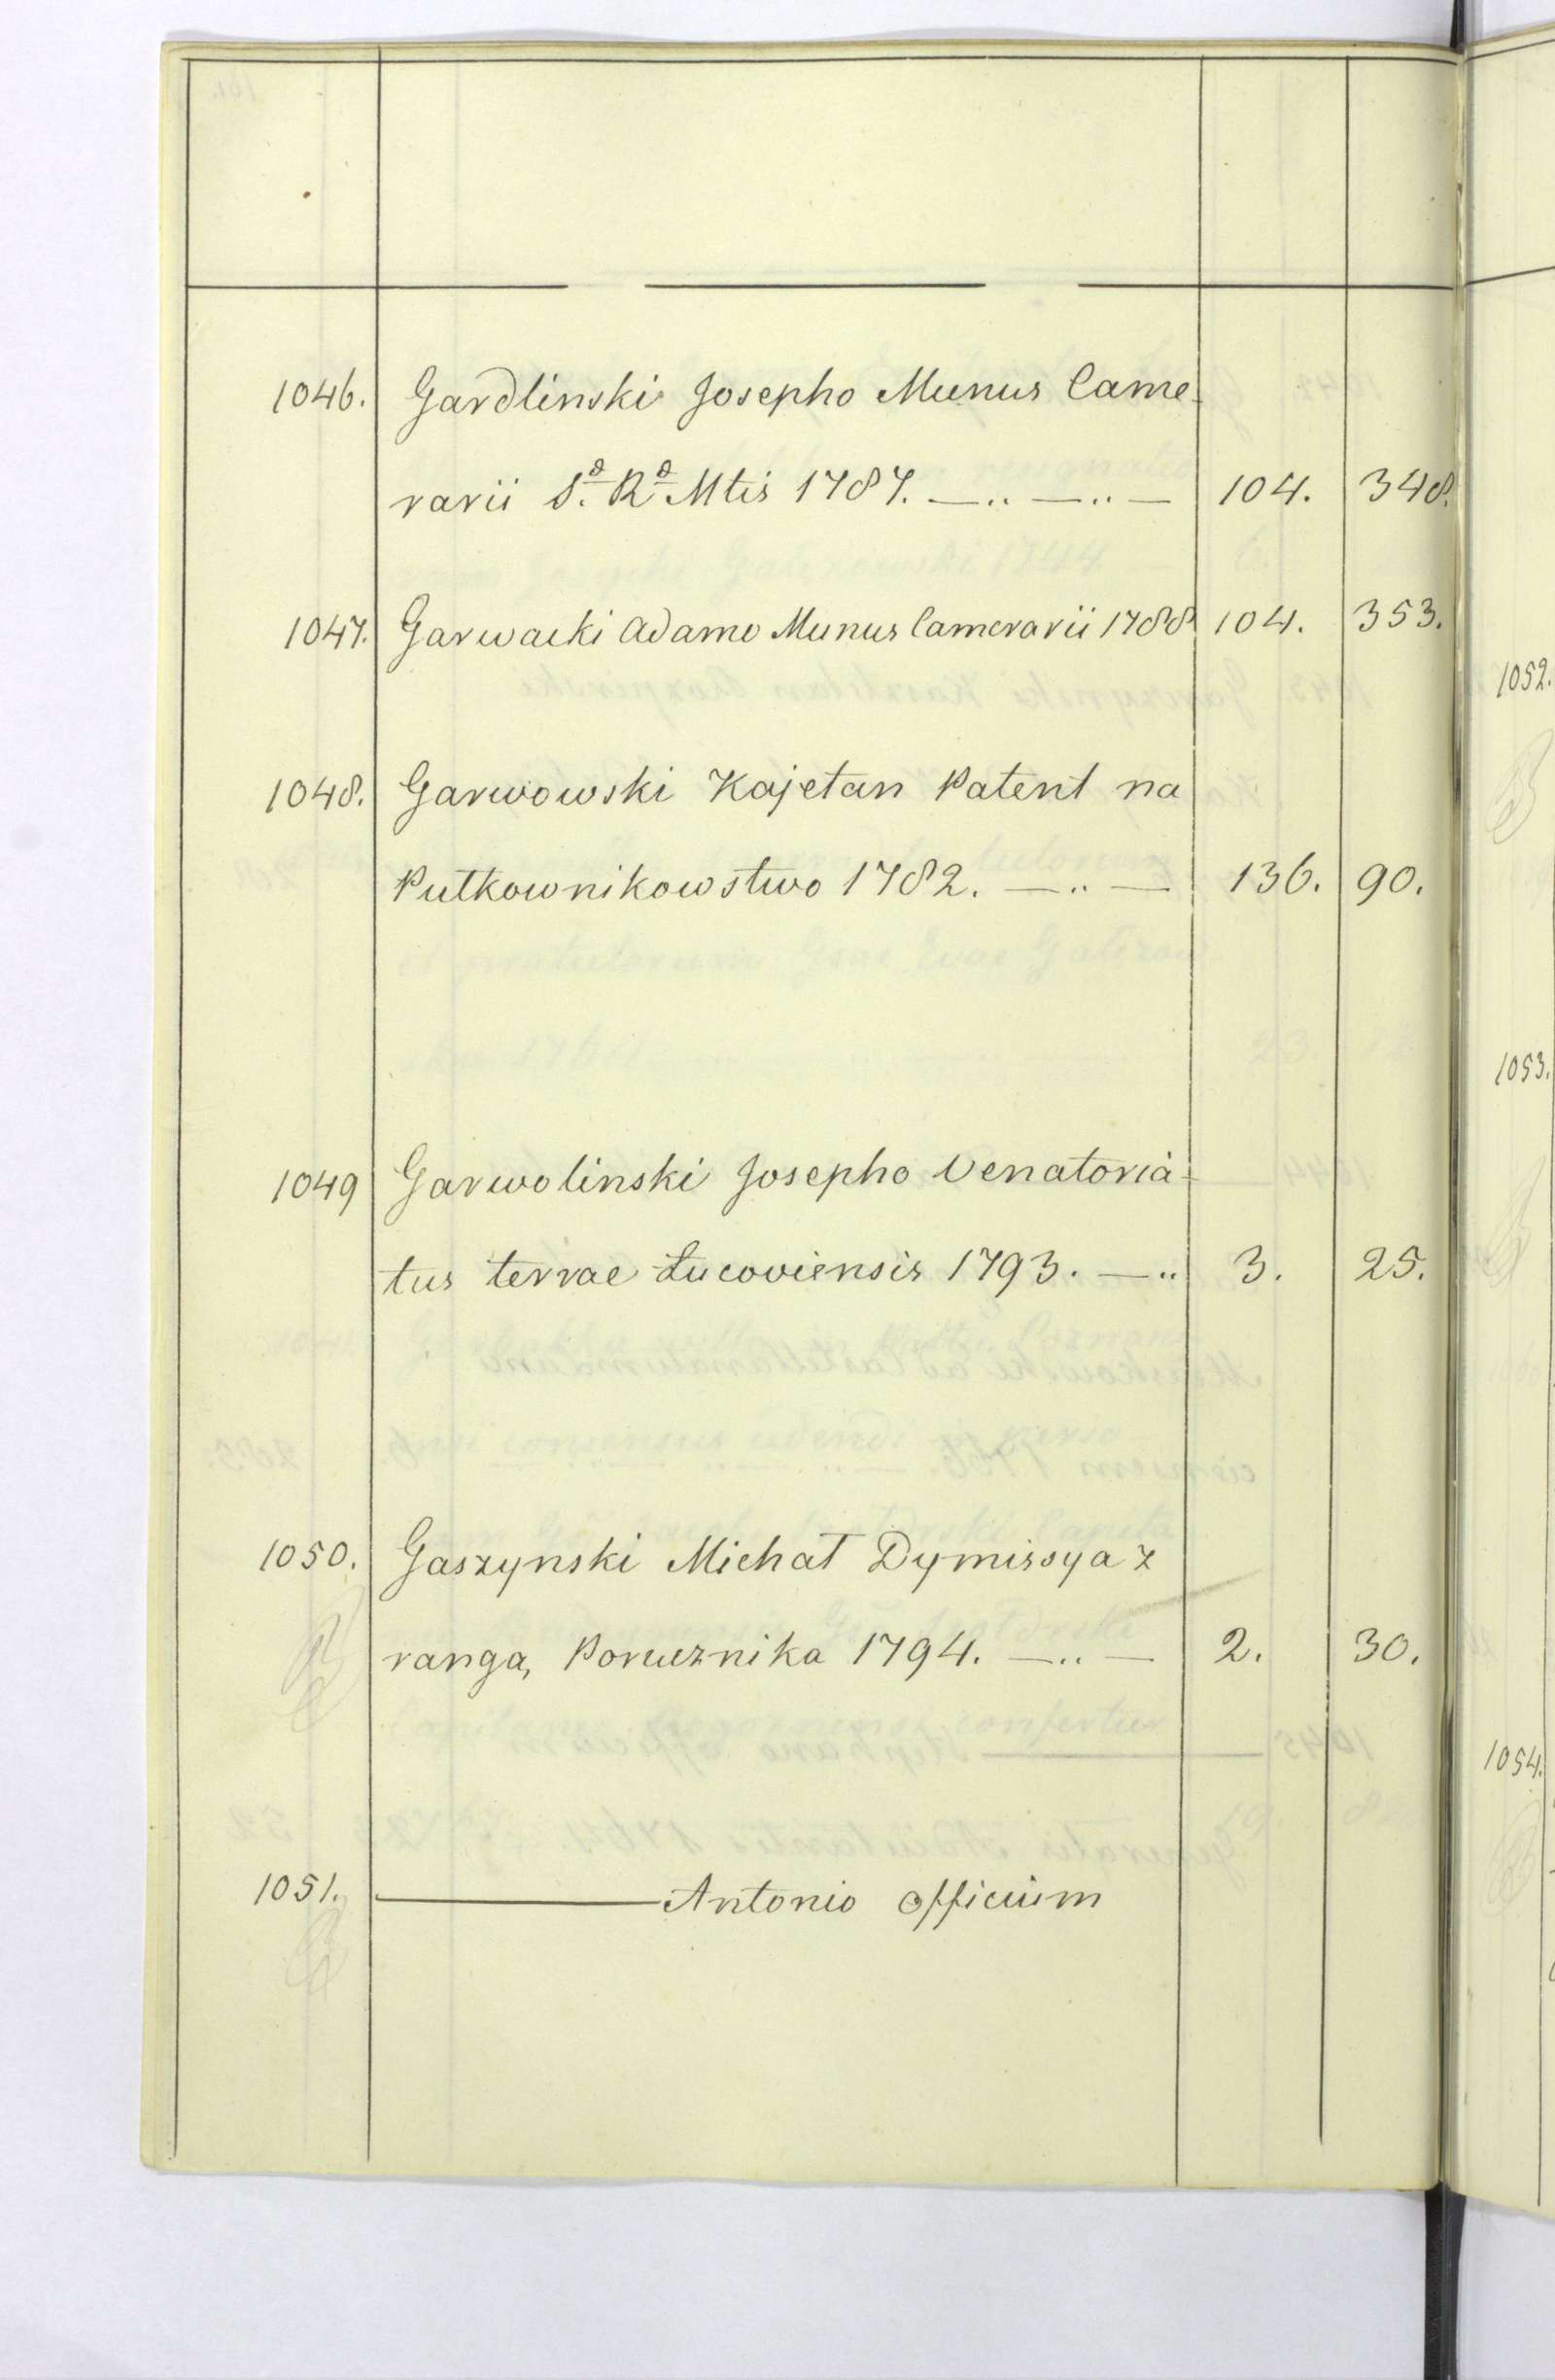 1046. Gardlinski Josepho Munus Came-
rarii S.ᵃ R.ᵃ Mtis 1787. —..—..— 104. 348.
1047. Garwacki Adamo Munus Camerarii 1788 104. 353.
1048. Garwowski Kajetan Patent na
Pułkownikowstwo 1782. —..— 136. 90.
1049 Garwolinski Josepho Venatoria-
tus terrae Łucoviensis 1793. —.. 3. 25.
1050. Gaszynski Michał Dymissya z
rangą Porucznika 1794. —..— 2. 30.
1051. ——— Antonio officium
1052.
1053.
1054.